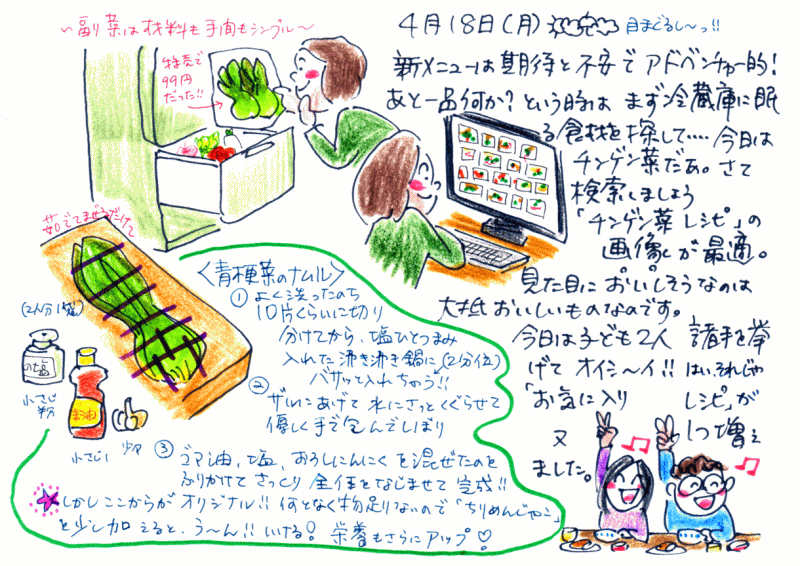 〜副菜は材料も手間もシンプル〜
4月18日(月)
目まぐるし〜っ!!
特売で
99円
だった!!
新メニューは期待と不安でアドベンチャー的!
あと一品何か?という時は まず冷蔵庫に眠
る食材を探して‥‥今日は
チンゲン菜だぁ。さて
検索しましょう
「チンゲン菜 レシピ」の
画像が最適。
見た目においしそうなのは
大抵おいしいものなのです。
今日は子ども2人 諸手を挙
げてオイシ〜イ!! はい、それじゃ
「お気に入り レシピ」が
又 1つ増え
ました。
茹でてまぜるだけで
(2人分1袋)
の塩
小さじ
粉
ごま油
小さじ1
少々
〈青梗菜のナムル〉
① よく洗ったのち
10片くらいに切り
分けてから、塩ひとつまみ
入れた沸き沸き鍋に(2分位)
バサッと入れちゃう!!
② ザルにあげて 水にさっとくぐらせて
優しく手で包んでしぼり
③ ゴマ油、塩、おろしにんにくを混ぜたのを
ふりかけてさっくり 全体をなじませて 完成!!
しかしここからがオリジナル!! 何となく物足りないので「ちりめんじゃこ」
を少し加えると、う〜ん!! いける! 栄養もさらにアップ♡